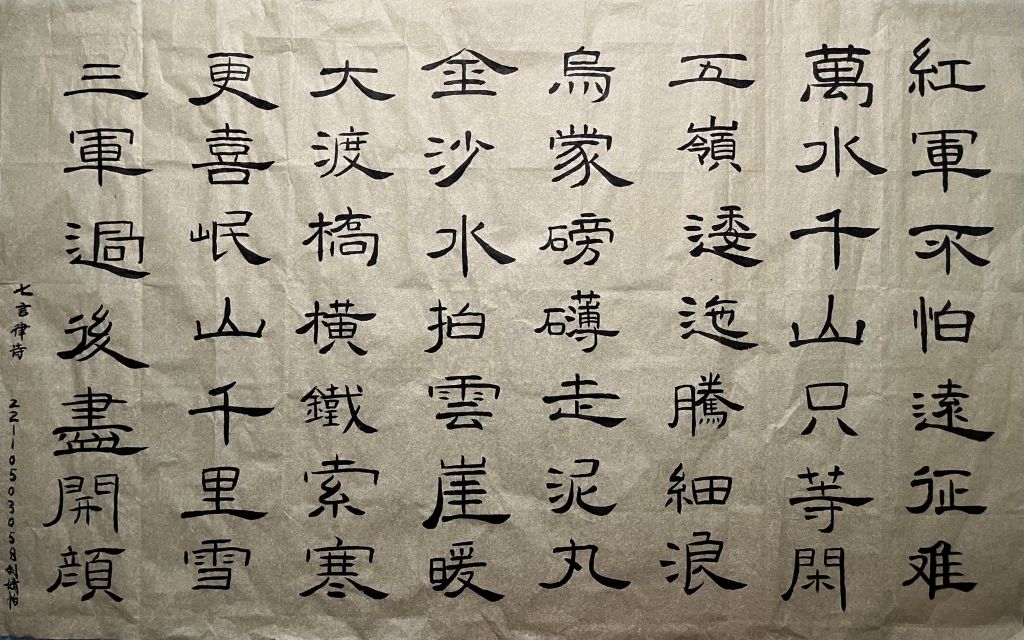 紅軍不怕遠征难
萬水千山只等閑
五嶺逶迤騰細浪
烏蒙磅礴走泥丸
金沙水拍雲崖暖
大渡橋橫鐵索寒
更喜岷山千里雪
三軍過後盡開顏
七言律诗 2210503058